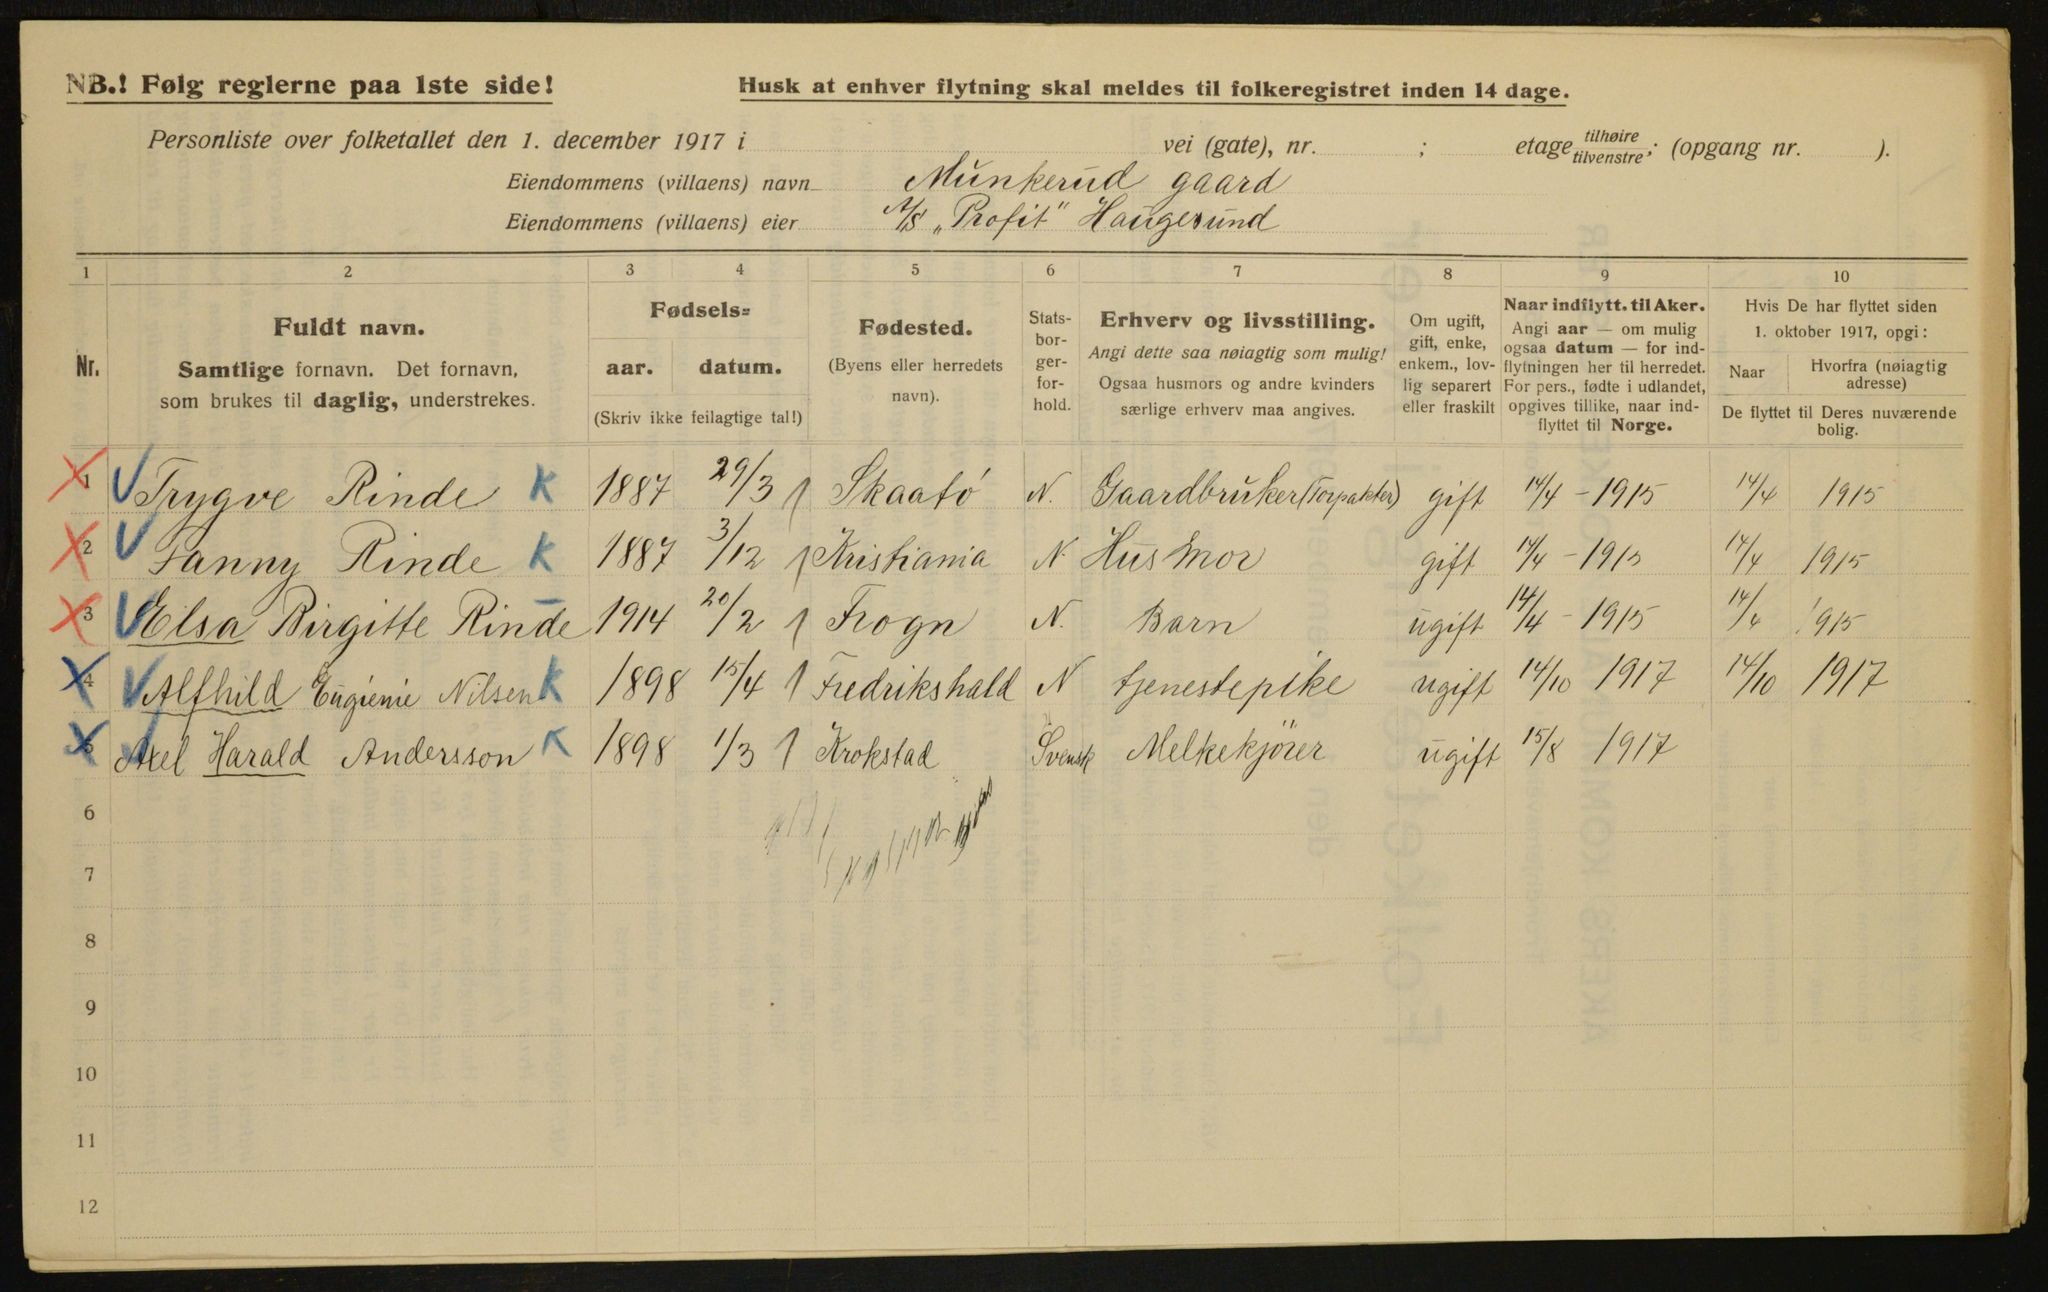 NB.! Følg reglerne paa 1ste side!
Husk at enhver flytning skal meldes til folkeregistret inden 14 dage.
Personliste over folketallet den 1. december 1917 i vei (gate), nr. ; etage tilhøire tilvenstre; (opgang nr. ).
Eiendommens (villaens) navn Munkerud gaard
Eiendommens (villaens) eier A/S „Profit" Haugesund
1 2 3 4 5 6 7 8 9 10
Nr.
Fuldt navn.
Samtlige fornavn. Det fornavn,
som brukes til daglig, understrekes.
Fødsels=
aar. datum.
(Skriv ikke feilagtige tal!)
Fødested.
(Byens eller herredets
navn).
Stats-
bor-
ger-
for-
hold.
Erhverv og livsstilling.
Angi dette saa nøiagtig som mulig!
Ogsaa husmors og andre kvinders
særlige erhverv maa angives.
Om ugift,
gift, enke,
enkem., lov-
lig separert
eller fraskilt
Naar indflytt. til Aker.
Angi aar — om mulig
ogsaa datum — for ind-
flytningen her til herredet.
For pers., fødte i utlandet,
opgives tillike, naar ind-
flyttet til Norge.
Hvis De har flyttet siden
1. oktober 1917, opgi:
Naar
Hvorfra (nøiagtig
adresse)
De flyttet til Deres nuværende
bolig.
1 Trygve Rinde K 1887 29/3 Skaatø N. Gaardbruker (Forpakter) gift 14/4 - 1915 14/4 1915
2 Fanny Rinde K 1887 3/12 Kristiania N. Husmor gift 14/4 - 1915 14/4 1915
3 Elsa Birgitte Rinde 1914 20/2 Frogn N. Barn ugift 14/4 - 1915 14/4 1915
4 Alfhild Eugienie Nilsen K 1898 15/4 Fredrikshald N tjenestepike ugift 14/10 1917 14/10 1917
5 Axel Harald Andersson K 1898 1/3 Krokstad Svensk Melkekjører ugift 15/8 1917
6
7
8
9
10
11
12